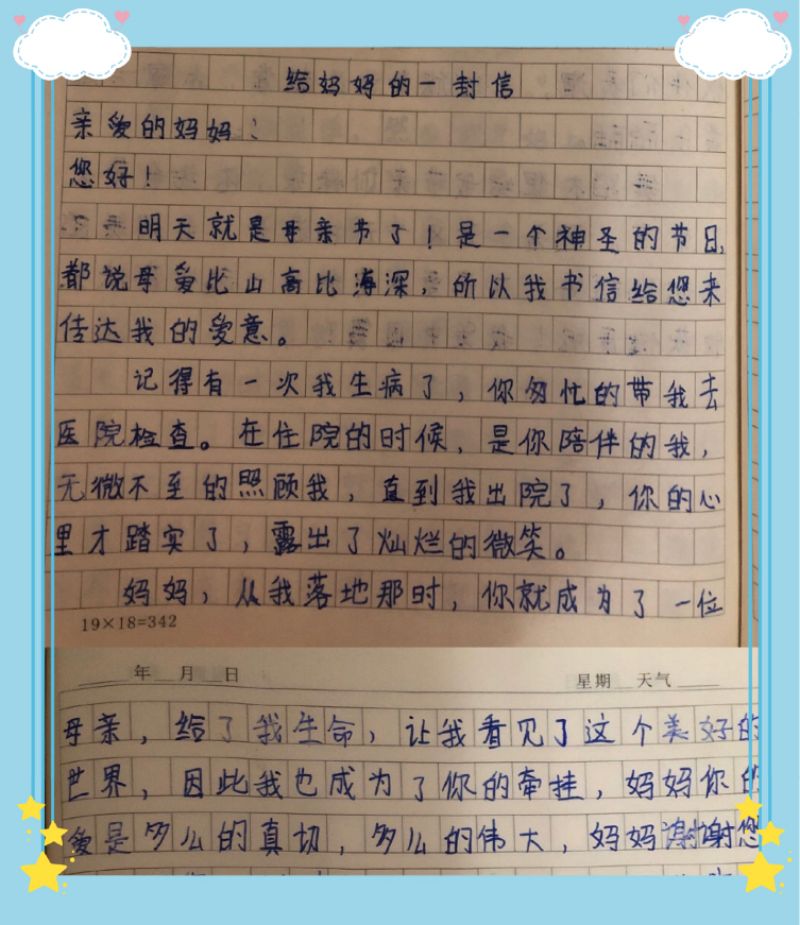 给妈妈的一封信
亲爱的妈妈：
您好！
明天就是母亲节了！是一个神圣的节日,
都说母爱比山高比海深，所以我书信给您来
传达我的爱意。
记得有一次我生病了，你匆忙的带我去
医院检查。在住院的时候，是你陪伴的我，
无微不至的照顾我，直到我出院了，你的心
里才踏实了，露出了灿烂的微笑。
妈妈，从我落地那时，你就成为了一位
19×18=342
年 月 日 星期 天气
母亲，给了我生命，让我看见了这个美好的
世界，因此我也成为了你的牵挂，妈妈你的
爱是多么的真切，多么的伟大，妈妈谢谢您